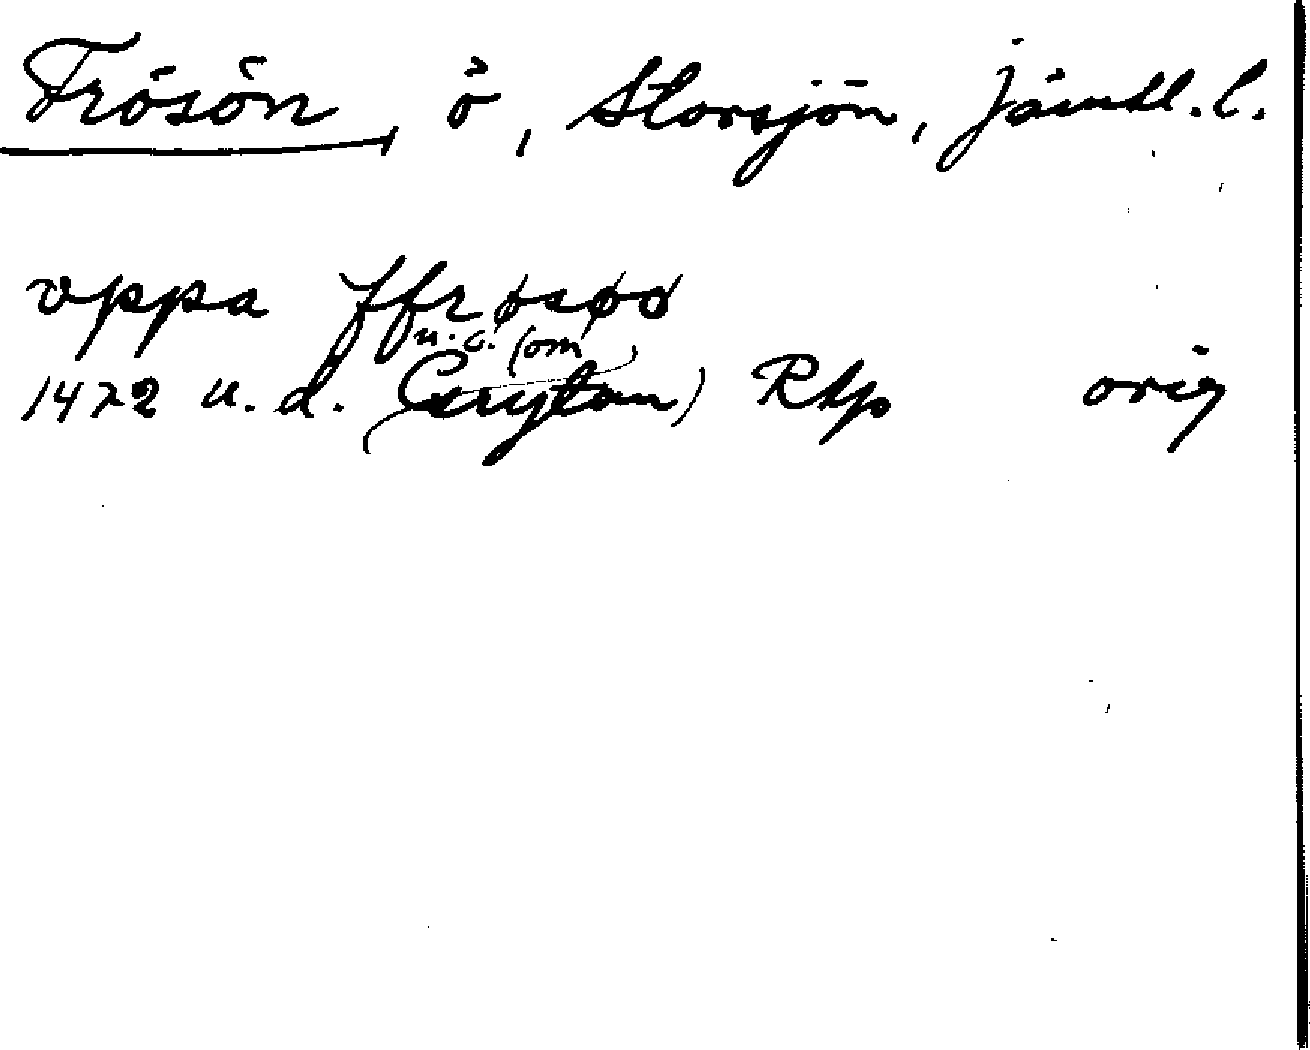 Frösön, ö, Storsjön, Jämtl. l.
oppa ffrøsøo
u. o. (om
1472 u. d. ) Rtp orig